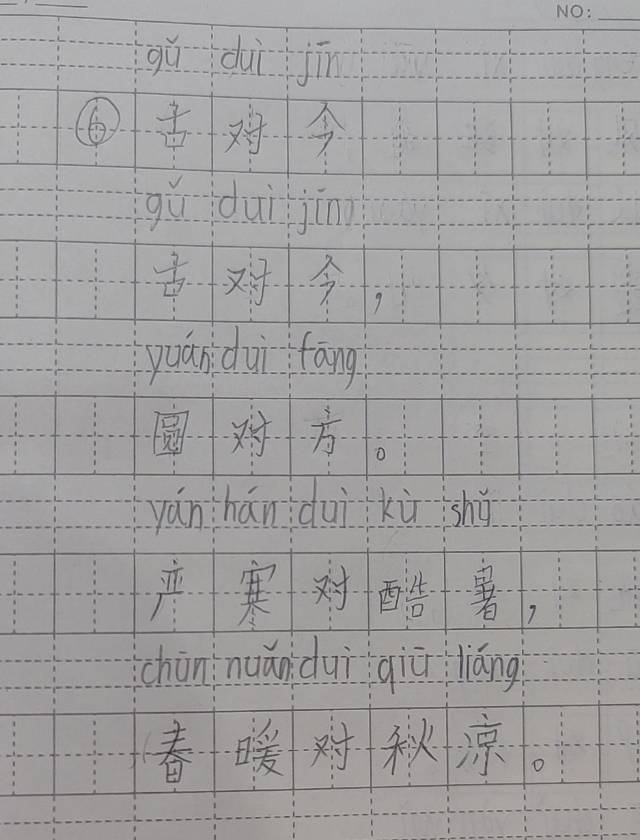 NO:
gǔ duì jīn
⑥ 古对今
gǔ duì jīn
古对今，
yuán duì fāng
圆对方。
yán hán duì kù shǔ
严寒对酷暑，
chūn nuǎn duì qiū liáng
春暖对秋凉。